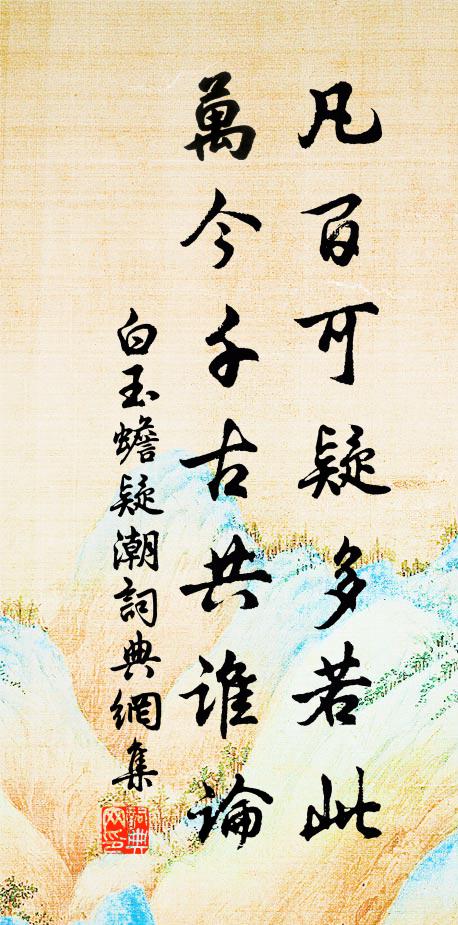 凡百可疑多若此
萬今千古共誰論
白玉蟾疑潮詞典網集